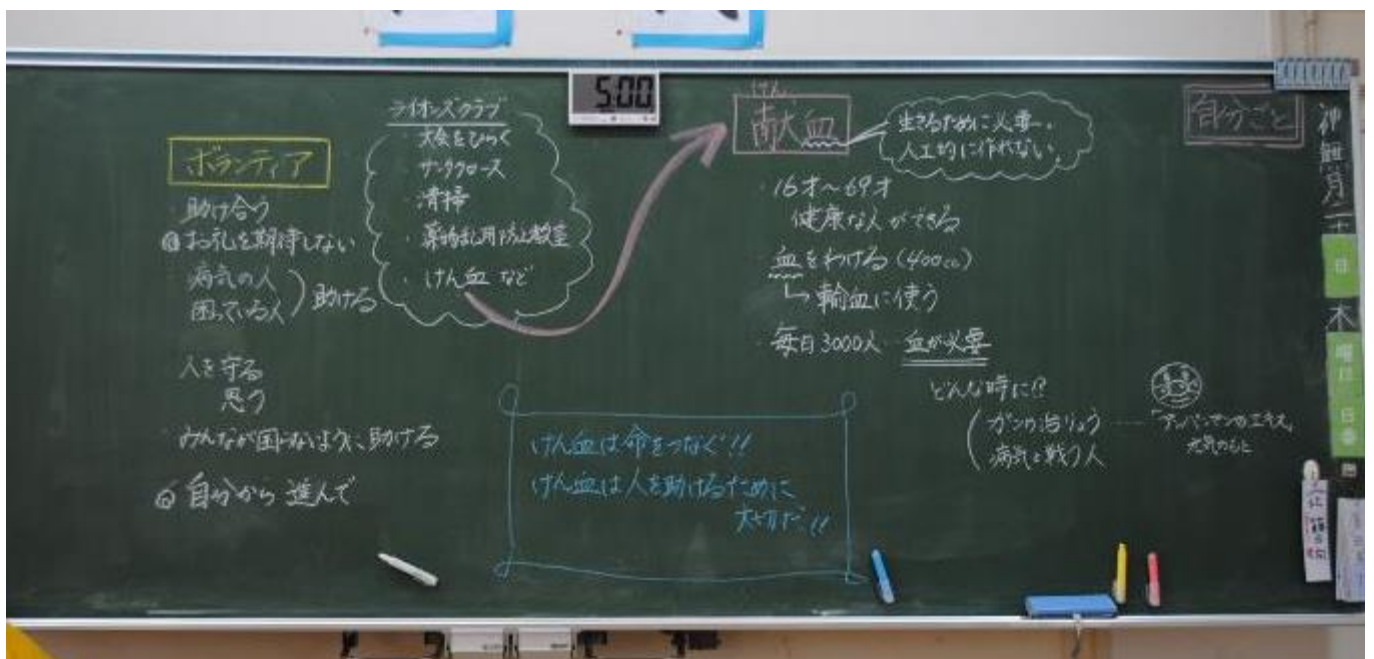 ボランティア
・助け合う
お礼を期待しない
病気の人
困っている人
助ける
人を守る
思う
・みんなが困らないように助ける
自分から 進んで
ライオンズクラブ
・大会をひらく
・サンタクロース
・清掃
・薬物乱用防止教室
・けん血 など
5:00
けん
献血
生きるために必要。
人工的に作れない。
・16才〜69才
健康な人ができる
・血をわける (400cc)
輸血に使う
・毎日3000人 血が必要
どんな時に!?
ガンの治りょう
病気と戦う人
「アンパンマンのエキス」
元気のもと
けん血は命をつなぐ!!
けん血は人を助けるために
大切だ!!
自分ごと
神無月二十
日
木
曜日
日番